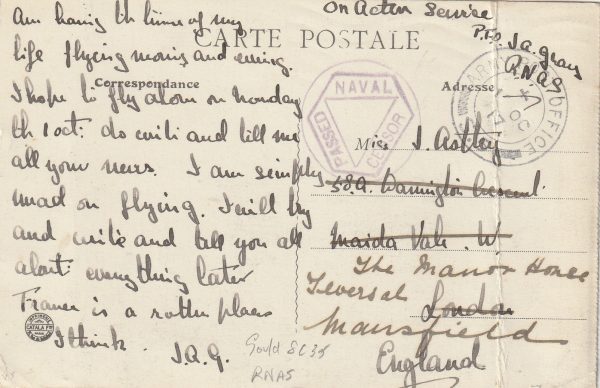 Am having the time of my
life flying mornis and evening.
I hope to fly alone on Monday
th 1 oct: do write and tell me
all your news. I am simply
mad on flying. I will try
and write and tell you all
about everything later
France is a rotten place
I think.
J.A.G.
CARTE POSTALE
Correspondance
Adresse
On Active Service
P.F.O. J.A. Glen
RNAS
PASSED
NAVAL
CENSOR
ARMY
OFFICE
OC
Miss J. Astley
58A. Warrington Crescent
Maida Vale. W
The Manor House
Teversal
London
Mansfield
England
Gould SC35
RNAS
IMPRIMERIE
CATALA FRES
PARIS